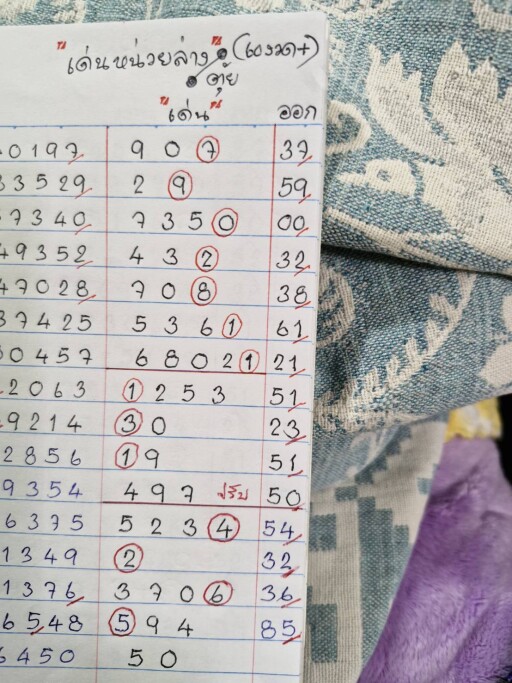 "เด่นหน่วยล่าง" (เองวด+)
ตุ้ย
"เด่น" ออก
0197 907 37
33529 29 59
7340 7350 00
49352 432 32
47028 708 38
37425 5361 61
30457 68021 21
2063 1253 51
9214 30 23
2856 19 51
9354 497 ปรับ 50
6375 5234 54
1349 2 32
1376 3706 36
6548 594 85
6450 50